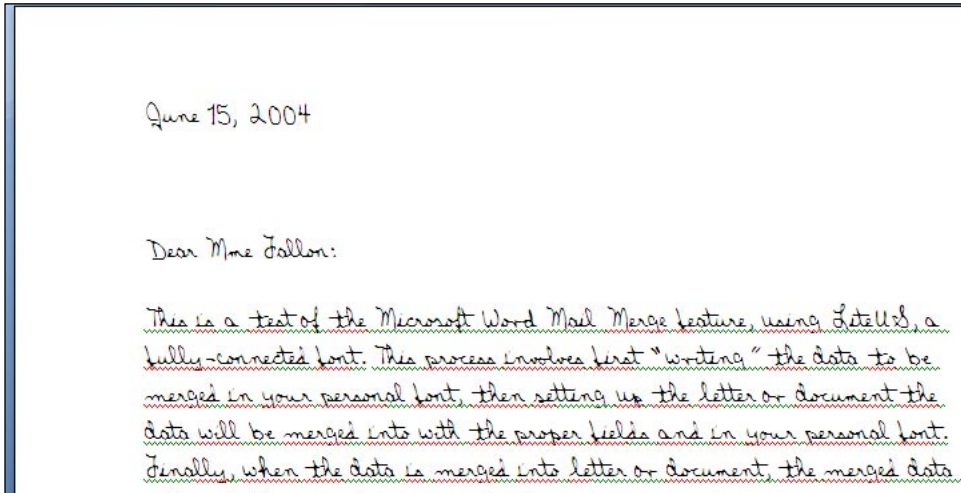 June 15, 2004
Dear Mme Fallon:
This is a test of the Microsoft Word Mail Merge feature, using LiteU.S, a
fully-connected font. This process involves first "writing" the data to be
merged in your personal font, then setting up the letter or document the
data will be merged into with the proper fields and in your personal font.
Finally, when the data is merged into letter or document, the merged data